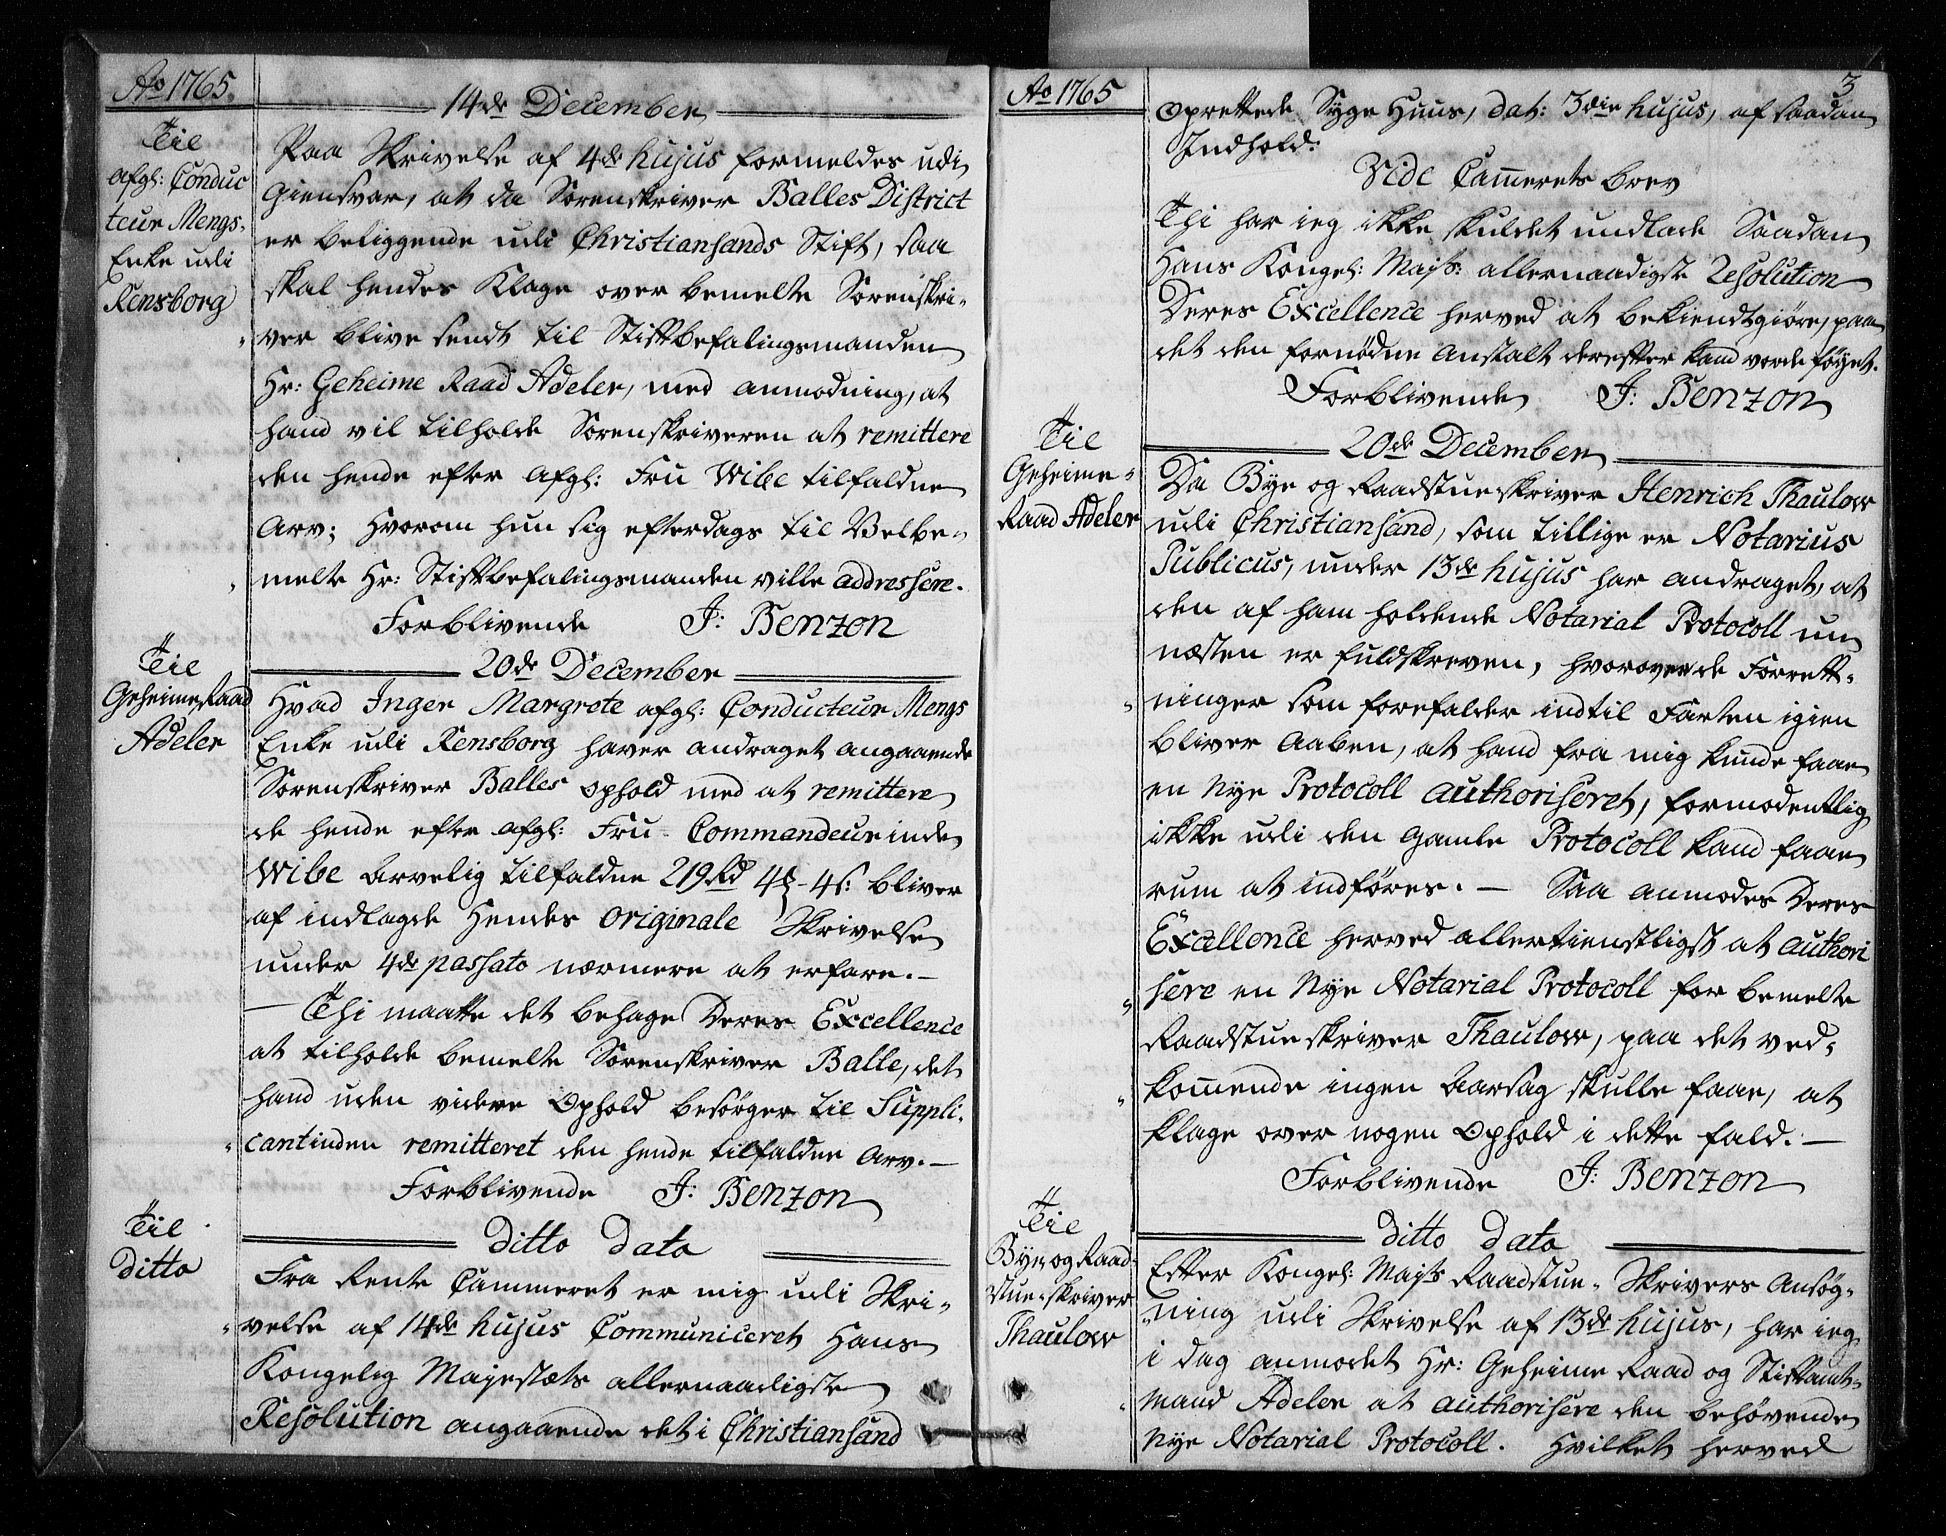 Ao 1765.
14de December
Til
afgl: Conduc
teur Mengs.
Enke udi
Rensborg
Paa Skrivelse af 4de hujus formeldes udi
Giensvar, at da Sorenskriver Balles District
er beliggende udi Christiansands Stift, saa
skal hendes Klage over bemelte Sorenskri-
ver blive sendt til Stiftbefalingsmanden
Hr: Geheime Raad Adeler, med anmodning, at
hand vil tilholde Sorenskriveren at remittere
den hende efter afgl: Fru Wibe tilfaldne
Arv; Hvorom hun sig efterdags til Velbe-
melte Hr: Stiftbefalingsmanden ville addressere.
Forblivende J: Benzon
20de December
Til
Geheime Raad
Adeler
Hvad Inger Margrete afgl: Conducteur Mengs
Enke udi Rensborg haver andraget angaaende
Sorenskriver Balles Ophold med at remittere
de hende efter afgl: Fru Commandeurinde
Wibe Arvelig tilfaldne 219 Rd 4 ꝑ - 4 s: bliver
af indlagde Hendes originale Skrivelse
under 4de passato nærmere at erfare. -
- Thi maatte det behage Deres Excellence
at tilholde bemelte Sorenskriver Balle, det
hand uden videre Ophold besørger til Suppli-
cantinden remitteret den hende tilfaldne Arv. -
Forblivende J: Benzon
ditto dato
Til
ditto
Fra Rente Cammeret er mig udi Skri-
velse af 14de hujus Communiceret Hans
Kongelig Majestæts allernaadigste
Resolution angaaende det i Christiansand
Ao 1765
3
oprettede Syge Huus, dat: 3die hujus, af saadan
Indhold:
Vide Cammerets brev
Thi har ieg ikke skuldet undlade Saadan
Hans Kongel: Majts: allernaadigste Resolution
Deres Excellence herved at bekiendtgiøre, paa
det den fornødne Anstalt derefter kand vorde føyet.
Forblivende J: Benzon
20de December
Til
Geheime-
Raad Adeler
Da Bye og Raadstueskriver Henrich Thaulow
udi Christiansand, som tillige er Notarius
Publicus, under 13de hujus har andraget, at
den af ham holdende Notarial Protocoll nu
næsten er fuldskreven, hvorover de Forrett-
ninger som forefalder indtil Farten igien
bliver Aaben, at hand fra mig kunde faae
en Nye Protocoll authoriseret, formodentlig
ikke udi den gamle Protocoll kand faae
rum at indføres. - Saa anmodes Deres
Excellence herved allertienstligst at authori
sere en Nye Notarial Protocoll for bemelte
Raadstueskriver Thaulow, paa det ved-
kommende ingen Aarsag skulle faae, at
klage over nogen Ophold i dette fald. -
Forblivende J: Benzon
ditto dato
Til
Bye og Raad-
stue-skriver
Thaulow
Efter Kongel: Majts Raadstue-Skrivers Ansøg-
ning udi Skrivelse af 13de hujus, har ieg
i dag anmodet Hr: Geheime Raad og Stiftamt-
mand Adeler at authorisere den behøvende
Nye Notarial Protocoll. Hvilket herved